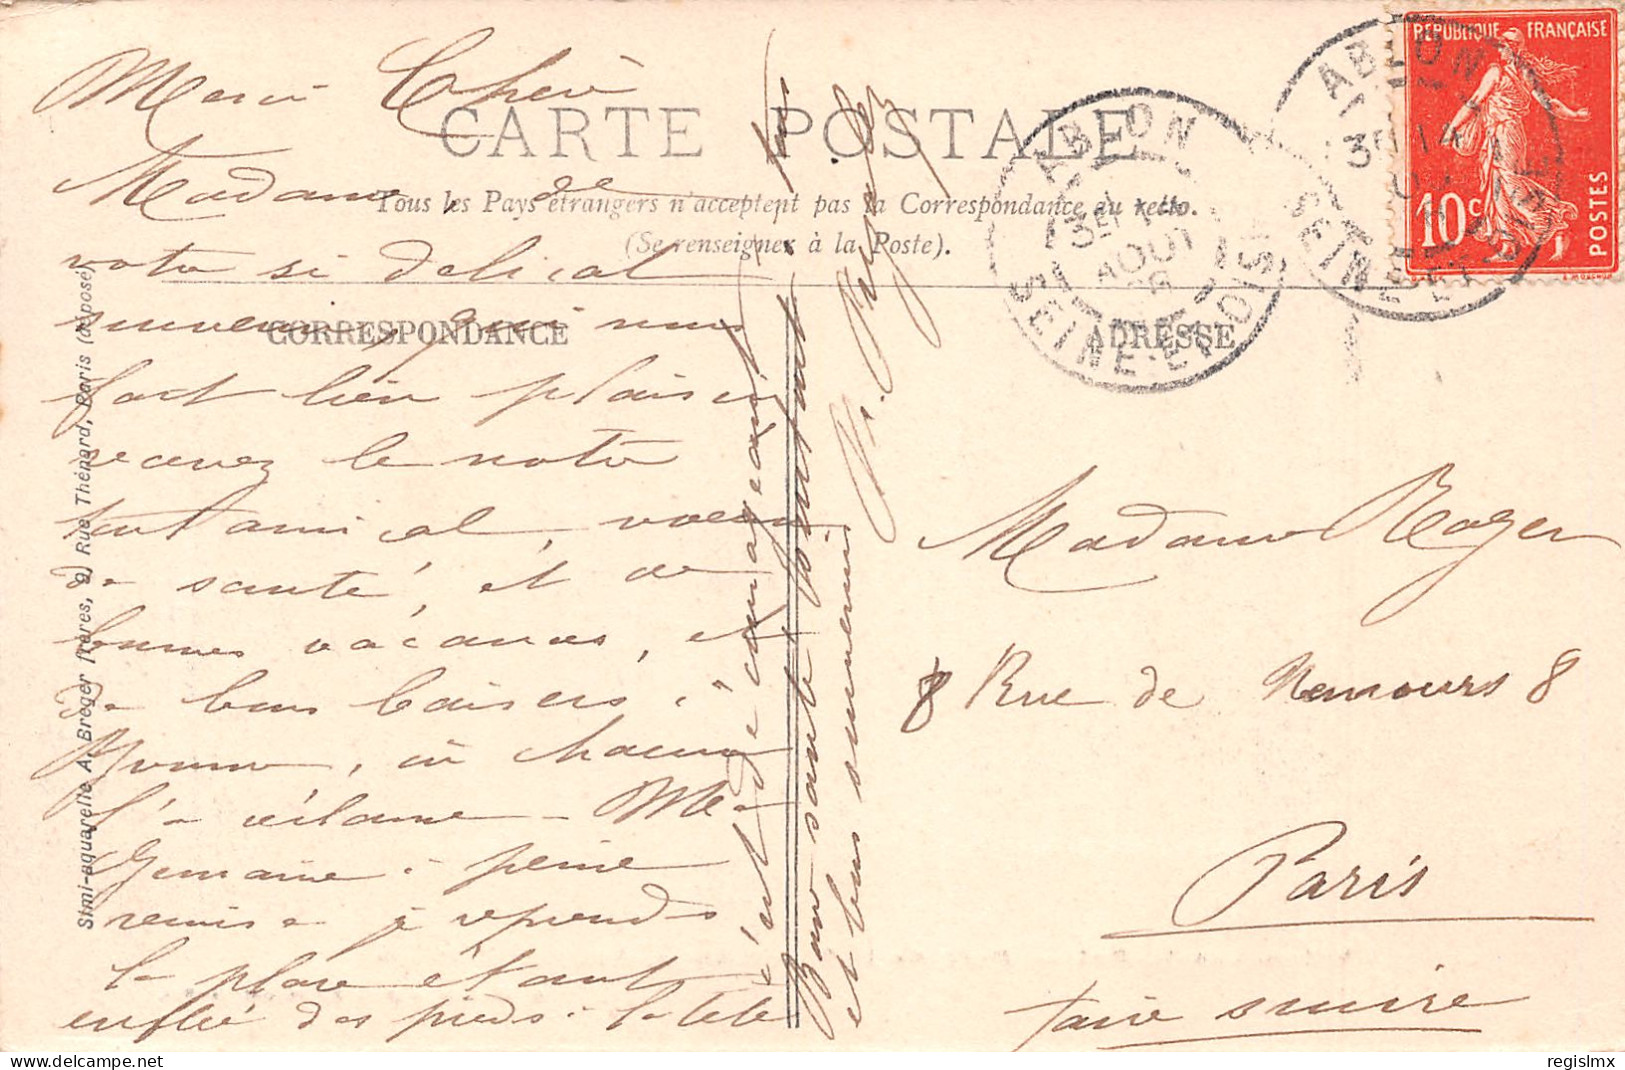 CARTE POSTALE
Tous les Pays étrangers n'acceptent pas la Correspondance au recto.
(Se renseigner à la Poste).
CORRESPONDANCE
ADRESSE
Simi-aquarelle A. Breger frères, 9, Rue Thénard, Paris (déposé)
Merci Chère
Madame, de
votre si délicat
souvenir, qui nous
fait bien plaisir
recevez le notre
tout amical, voeux
de santé, et de
bonnes vacances, et
de bons baisers à
Yvonne, où chacun
la réclame. Me
Germaine à peine
remise je reprends
la place étant
enflée des pieds à la tête
c'est décourageant
Bonne santé
et bon souvenir
Madame Roger
8 Rue de Nemours 8
Paris
faire suivre
REPUBLIQUE FRANÇAISE
10c POSTES
ABLON
3E
AOUT
SEINE-ET-OISE
ABLON
3E 14
SEINE-ET-OISE
regislmx